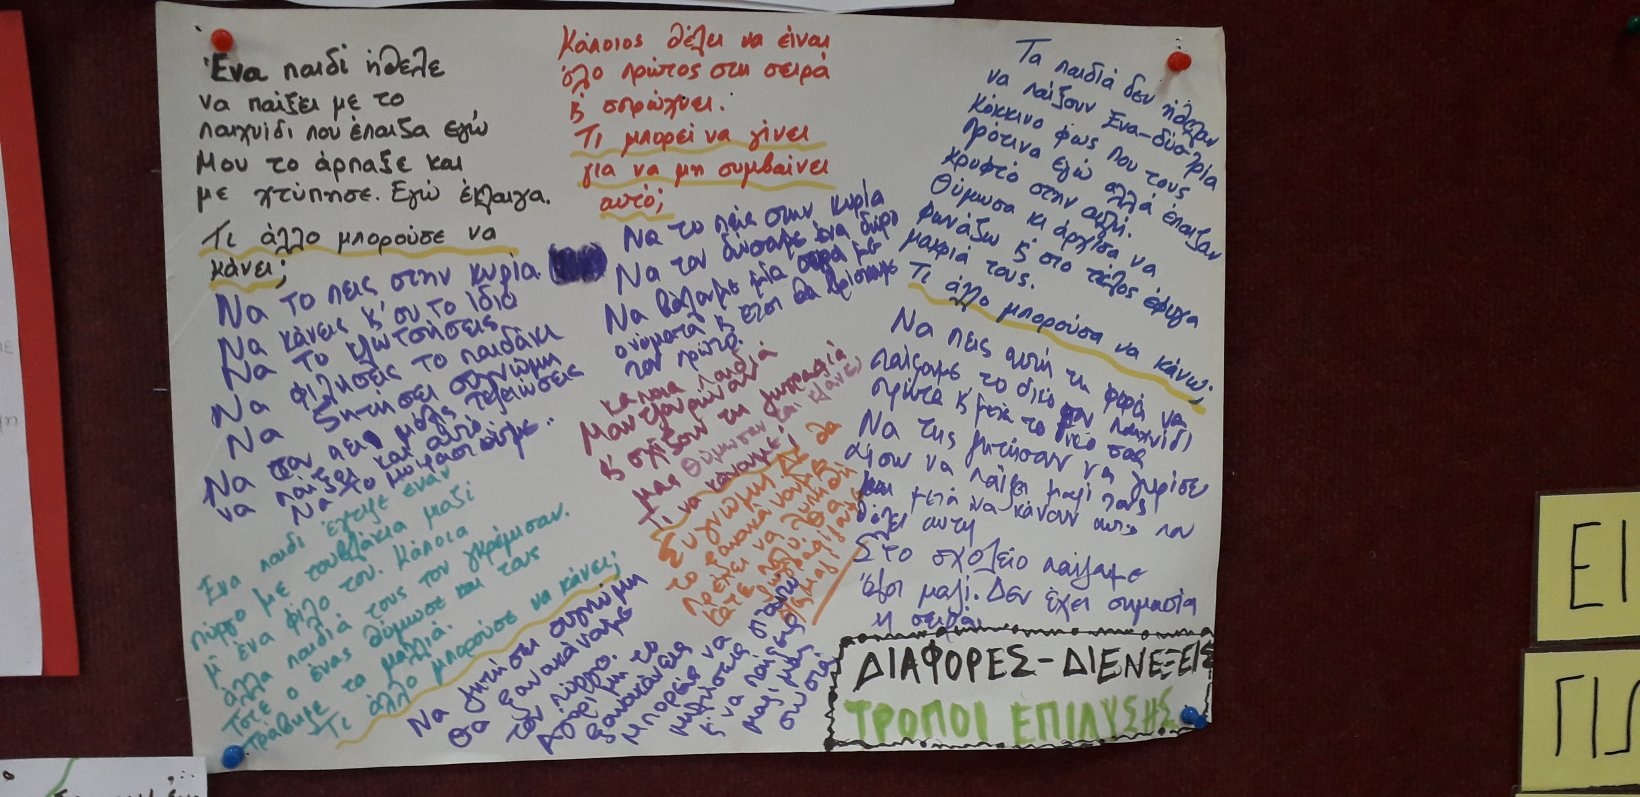 Ένα παιδί ήθελε
να παίξει με το
παιχνίδι που έπαιζα εγώ
Μου το άρπαξε και
με χτύπησε. Εγώ έκλαιγα.
Τι άλλο μπορούσε να
κάνει;
Να το πεις στην κυρία
Να κάνεις κ' συ το ίδιο
Να το κλωτσήσεις
Να φιλήσεις το παιδάκι
Να ζητήσει συγνώμη
Να σαν πει μόλις τελειώσεις
να παίξει και αυτό.
Να το μοιραστούμε..
Κάποιος θέλει να είναι
όλο πρώτος στη σειρά
κ' σπρώχνει.
Τι μπορεί να γίνει
για να μη συμβαίνει
αυτό;
Να το πεις στην κυρία
Να του δώσουμε ένα δώρο
Να βάλουμε μία σειρά με
ονόματα κ' έτσι θα βρίσκουμε
τον πρώτο.
Τα παιδιά δεν ήθελαν
να παίξουν Ένα-δύο-τρία
κόκκινο φως που τους
πρότεινα εγώ αλλά έπαιζαν
κρυφτό στην αυλή.
Θύμωσα κι άρχισα να
φωνάζω κ' στο τέλος έφυγα
μακριά τους.
Τι άλλο μπορούσα να κάνω;
Να πεις αυτή τη φορά να
παίξουμε το δικό μου παιχνίδι
πρώτα κ' μετά το δικό σας
Να της ζητήσουν να γυρίσει
πίσω να παίξει μαζί τους
και μετά να κάνουν αυτό που
θέλει αυτή
Στο σχολείο παίζουμε
όλοι μαζί. Δεν έχει σημασία
η σειρά.
κάποια παιδιά
μουτζουρώνουν
κ' σχίζουν τη ζωγραφιά
μας Θύμωσαν και κλαίνε,
Τι να κάνουμε;
Συγνώμη Δε θα
το ξανακάνουμε
Ένα παιδί έχτιζε έναν
πύργο με τουβλάκια μαζί
μ' ένα φίλο του. Κάποια
άλλα παιδιά τους τον γκρέμισαν.
Τότε ο ένας θύμωσε και τους
τράβηξε τα μαλλιά.
Τι άλλο μπορούσε να κάνει;
Να ζητήσει συγνώμη
Θα ξανακάνουμε
τον πύργο.
μη το
ξανακάνεις
μπορείς να
μιλήσεις
κ' να παίξεις
μαζί μας
σωστά
ΔΙΑΦΟΡΕΣ-ΔΙΕΝΕΞΕΙΣ
ΤΡΟΠΟΙ ΕΠΙΛΥΣΗΣ
ΕΙ